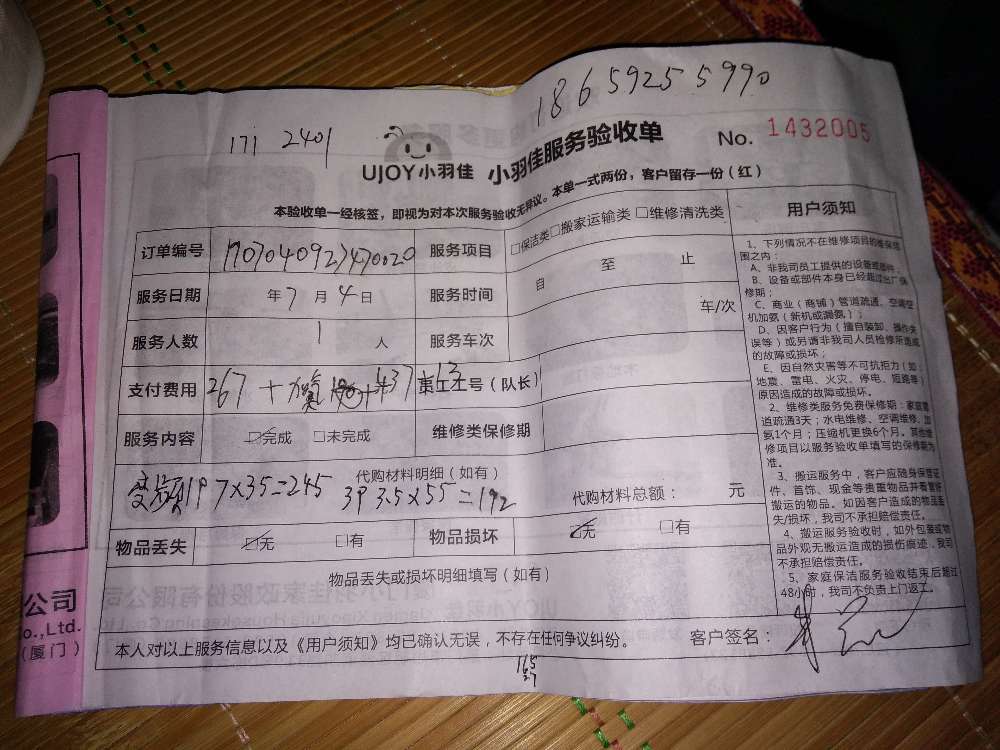 18659255990
171 2401
UJOY小羽佳 小羽佳服务验收单 No. 1432005
本验收单一经核签，即视为对本次服务验收无异议。本单一式两份，客户留存一份（红）
订单编号 服务项目 □保洁类□搬家运输类 □维修清洗类
服务日期 年 7 月 4 日 服务时间 自 至 止
服务人数 1 人 服务车次 车/次
支付费用 267 + 437 员工工号（队长）
服务内容 ☑完成 □未完成 维修类保修期
代购材料明细（如有）
变频1P 7×35=245 3P 3.5×55=192 代购材料总额： 元
物品丢失 ☑无 □有 物品损坏 ☑无 □有
物品丢失或损坏明细填写（如有）
本人对以上服务信息以及《用户须知》均已确认无误，不存在任何争议纠纷。 客户签名：
165
27
用户须知
1、下列情况不在维修项目的维保范
围之内：
A、非我司员工提供的设备或部件；
B、设备或部件本身已经超过出厂保
修期；
C、商业（商铺）管道疏通、空调空
机加氨（新机或漏氨）；
D、因客户行为（擅自装卸、操作失
误等）或另请非我司人员检修所造成
的故障或损坏；
E、因自然灾害等不可抗拒力（如：
地震、雷电、火灾、停电、短路等）
原因造成的故障或损坏。
2、维修类服务免费保修期：家庭管
道疏通3天；水电维修、空调维修、加
氨1个月；压缩机更换6个月。其他维
修项目以服务验收单填写的保修期为
准。
3、搬运服务中，客户应随身保管证
件、首饰、现金等贵重物品并看管好
搬运的物品。如因客户造成的物品丢
失/损坏，我司不承担赔偿责任。
4、搬运服务验收时，如外包装或物
品外观无搬运造成的损伤痕迹，我司
不承担赔偿责任。
5、家庭保洁服务验收结束后超过
48小时，我司不负责上门返工。
公司
o.,Ltd.
（厦门）